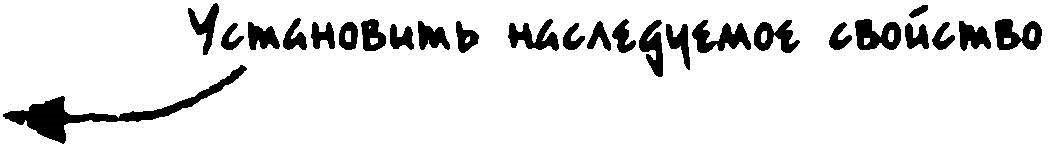 Установить наследуемое свойство